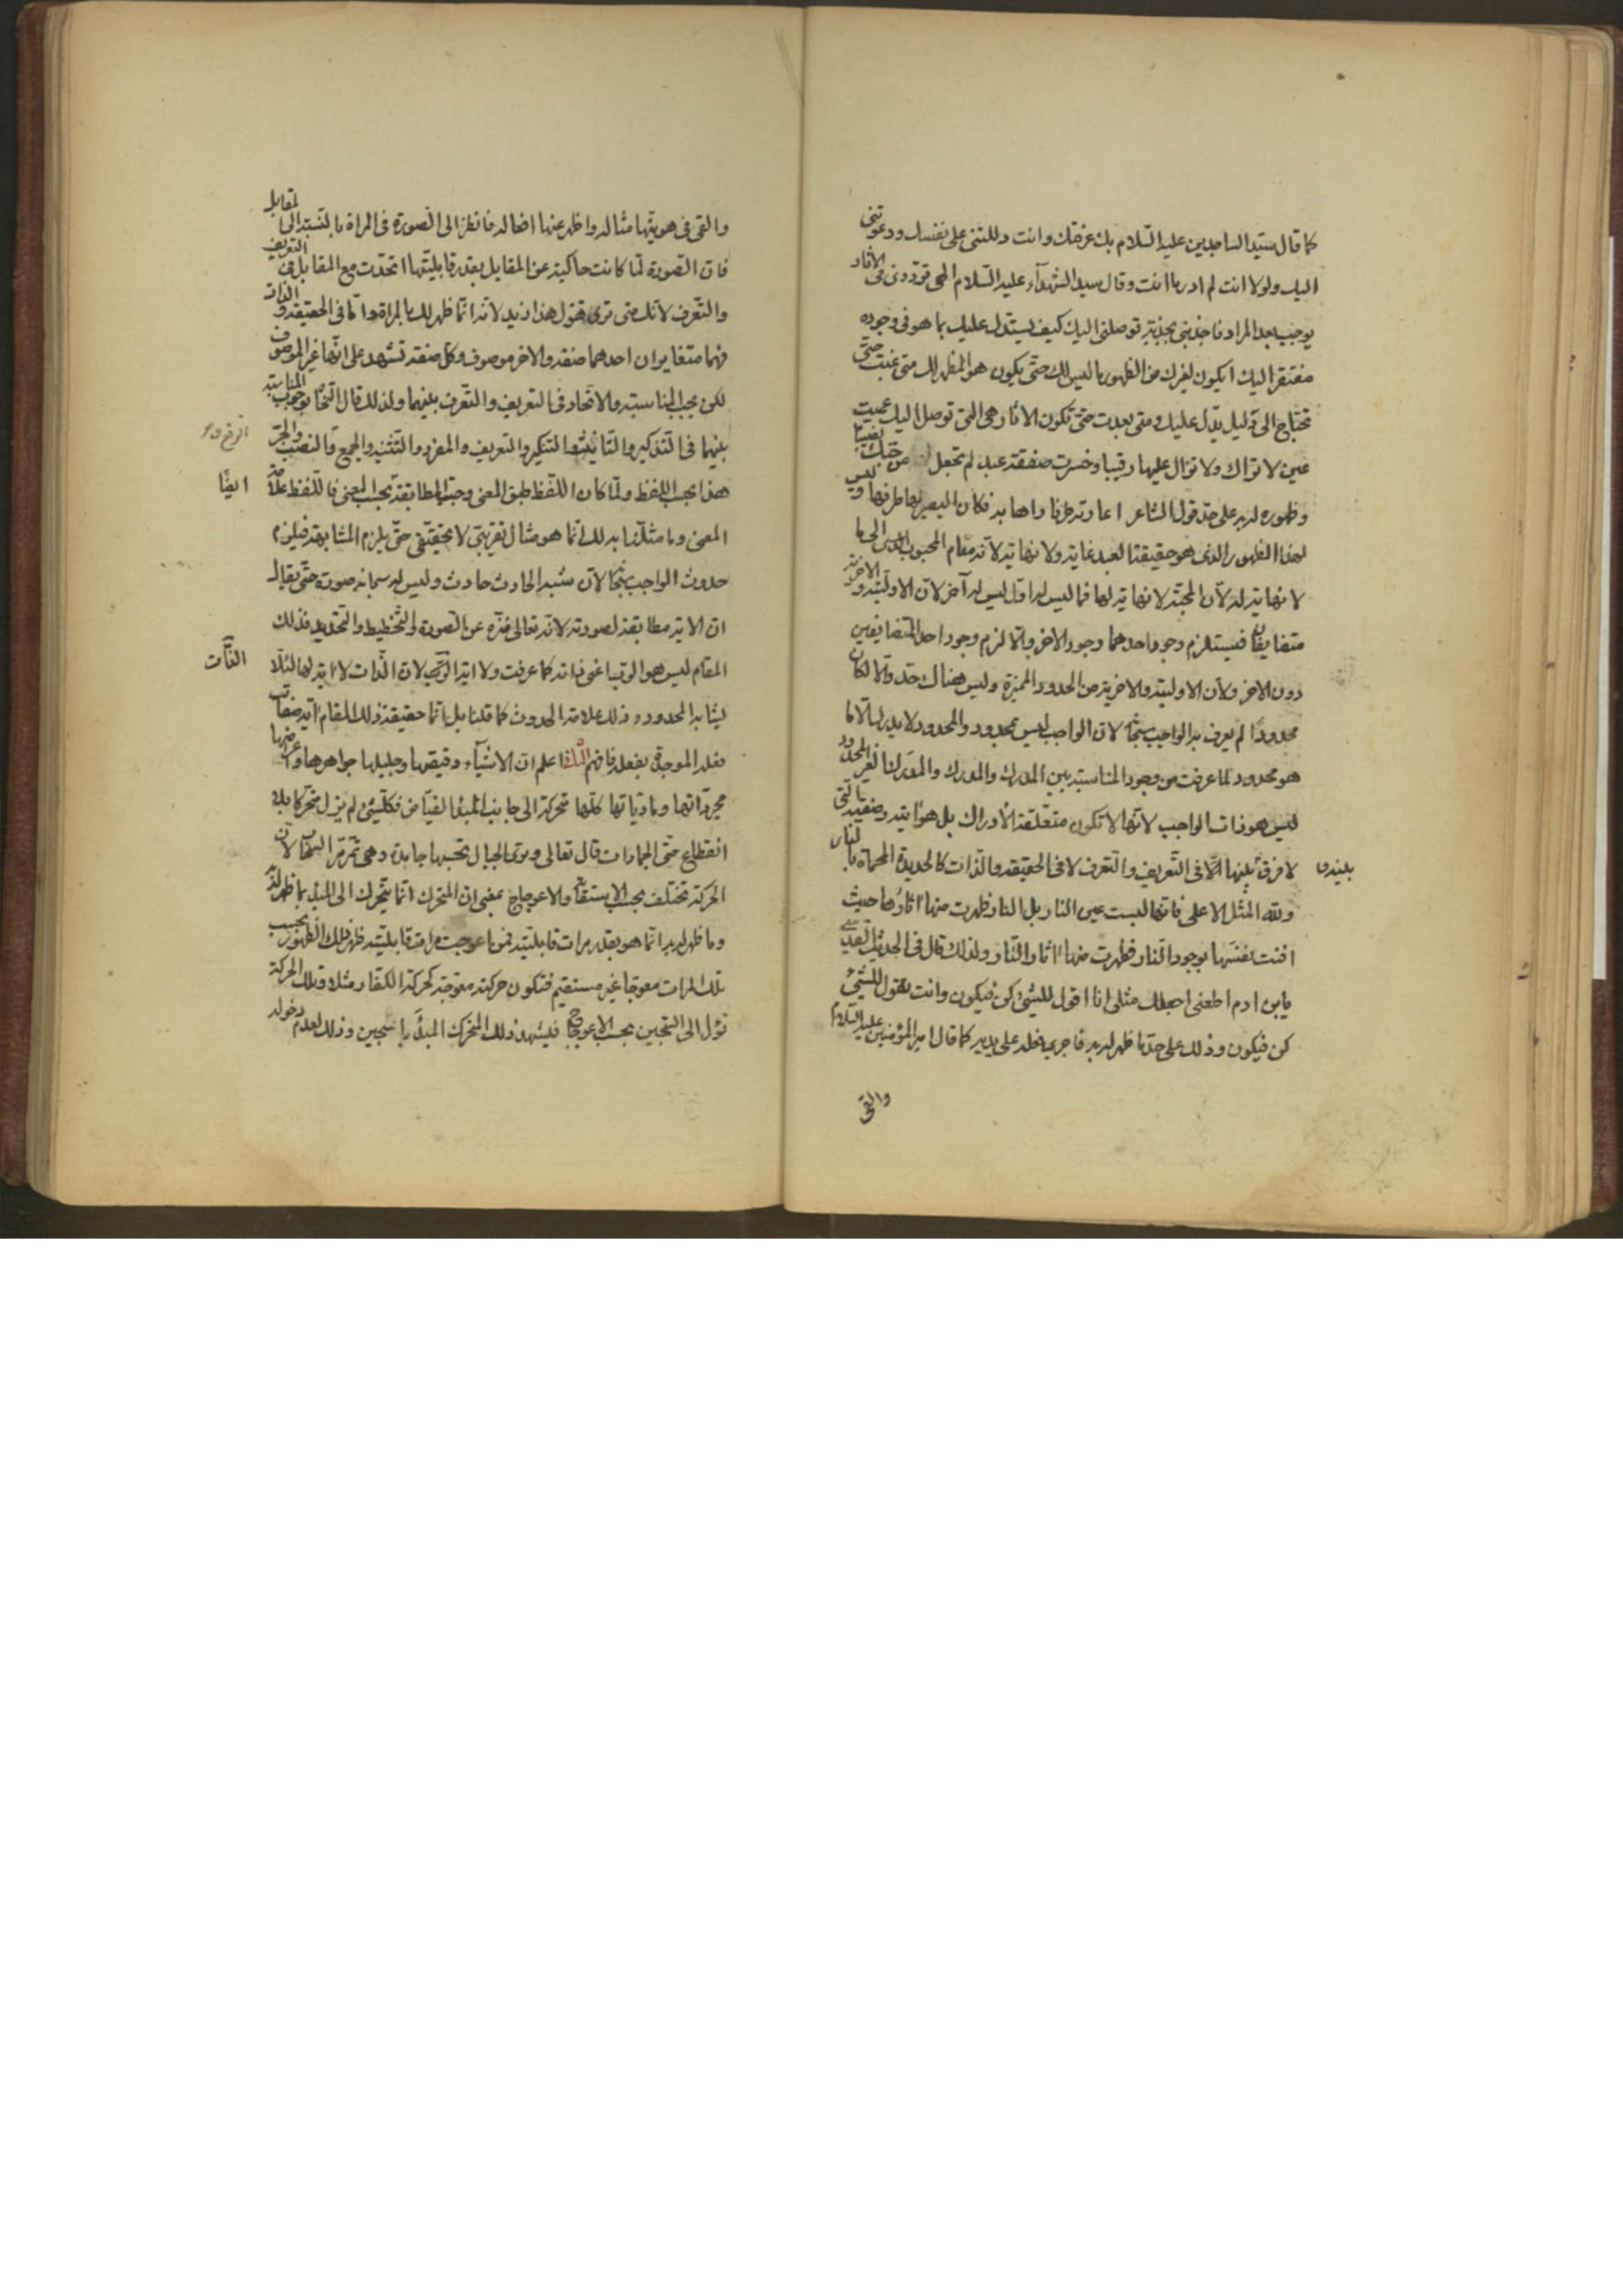 كما قال سيّد الساجدين عليه السّلام بك عرفتك وانت دللتنى على نفسك ودعوتنى
اليك ولولا انت لم ادر ما انت وقال سيد الشهدآء عليه السّلام الهى تردّدى فى الاثار
يوجب بعد المزار فاجذبنى بجذبة توصلنى اليك كيف يستدل عليك بما هو فى وجوده
مفتقر اليك ايكون لغيرك من الظهور ما ليس لك حتى يكون هو المظهر لك متى غبت حتّى
تحتاج الى دليل يدّل عليك ومتى بعدت حتى تكون الاثار هى التى توصل اليك عميت
عين لا تراك ولا تزال عليها رقيبا وخسرت صفقة عبد لم تجعل له من حبّك نصيبا
وظهوره له به على حدّ قول الشاعر اعارته طرفا راها به فكان البصير لها طرفها وليس
لهذا الظهور الذى هو حقيقة العبد غاية ولا نهاية لانّه مقام المحبوب الى ما
لا نهاية له لانّ المحبّة لا نهاية لها فما ليس له اوّل ليس له آخر لانّ الاوليّة والاخريّة
متضايفان فيستلزم وجود احدهما وجود الاخر والّا لزم وجود احد المتضايفين
دون الاخر ولانّ الاوليّة والاخرية من الحدود المميزة وليس هناك حدّ والّا لكان
محدودًا لم يعرف به الواجب سبحانه لانّ الواجب ليس بمحدود والمحدود لا يدرك الّا ما
هو محدود لما عرفت من وجود المناسبة بين المدرِك والمدرَك والمدرَك الغير المحدود
ليس هو ذات الواجب لانّها لا تكون متعلّقة الادراك بل هو اية وصفة التى
لا فرق بينها الّا فى التّعريف والتّعرف لا فى الحقيقة والذّات كالحديدة المحماة بالنار
بينه و
ولله المثل الاعلى فانّها ليست عين النار بل النار ظهرت منها اثارُها حيث
افنت نفسَها بوجود النار فظهرت منها اثار النّار ولذلك قال فى الحديث القدسى
يابن ادم اطعنى اجعلك مثلى انا اقول للشئ كن فيكون وانت تقول للشئ
كن فيكون وذلك على حدّ ما ظهر له به فاجرى فعله على يديه كما قال امير المؤمنين عليه السّلام
والقى
والقى فى هويّتها مثاله واظهر عنها افعاله فانظر الى الصورة فى المراة بالنّسبة الى المقابل
فانّ الصّورة لمّا كانت حاكية عن المقابل بقدر قابليّتها اتحدّت مع المقابل فى التّعريف
والتّعرف لانّك متى ترى تقول هذا زيد لانّه انّما ظهر لك بالمراة وامّا فى الحقيقة والذّات
فهما متغايران احدهما صفة والاخر موصوف وكلّ صفة تشهد على انّها غير الموصوف
لكن يجب المناسبة والاتّحاد فى التعريف والتّعرف بينهما ولذلك قال النّحاة بوجوب المناسبة
بينهما فى التذكير والتّأنيث والتنكير والتعريف والمفرد والتّثنية والجمع والنّصب والجرّ
والرفع
هذا بحسب اللفظ ولمّا كان اللّفظ طبق المعنى وجبت المطابقة بحسب المعنى فاللّفظ علامة
ايضًا
المعنى وما مثّلنا به لك انّما هو مثال تقريبىّ لا تحقيقّى حتّى يلزم المشابهة فيلزم
حدوث الواجب سبحانه لانّ شبه الحادث حادث وليس له سبحانه صورة حتّى يقال
انّ الاية مطابقة لصورته لانّه تعالى منزّه عن الصّورة والتّخطيط والتّحديد فذلك
المقام ليس هو الرّب اعنى ذاته كما عرفت ولا اية الرّب لانّ الذّات لا اية لها لئلّا
الذّات
يشابه المحدود وذلك علامة الحدوث كما قلنا بل انّما حقيقة ذلك المقام اية صفات
فعله الموجدة بفعله فافهم الثّالث اعلم انّ الاشيآء دقيقها وجليلها جواهرها واعراضها
مجرّداتها ومادّياتها كلّها متحركة الى جانب المبدأ الفيّاض فكلّ شئ لم يزل متحركا بلا
انقطاع حتى الجمادات قال تعالى وترى الجبال تحسبها جامدة وهى تمرّ مرّ السّحاب لانّ
الحركة تختلف بحسب الاستقامة والاعوجاج بمعنى انّ المتحرك انّما يتحرك الى المبدء بما ظهر له به
وما ظهر له به انّما هو بقدر مرات قابليّته فمن اعوجت مراة قابليّته ظهر ذلك الظهور بحسب
تلك المرات معوجا غير مستقيم فتكون حركته معوجة كحركة الكفّار مثلا وتلك الحركة
تؤل الى السّجين بحسب الاعوجاج فيشهد ذلك المتحرك المبدأ بالسّجين وذلك لعدم دخوله